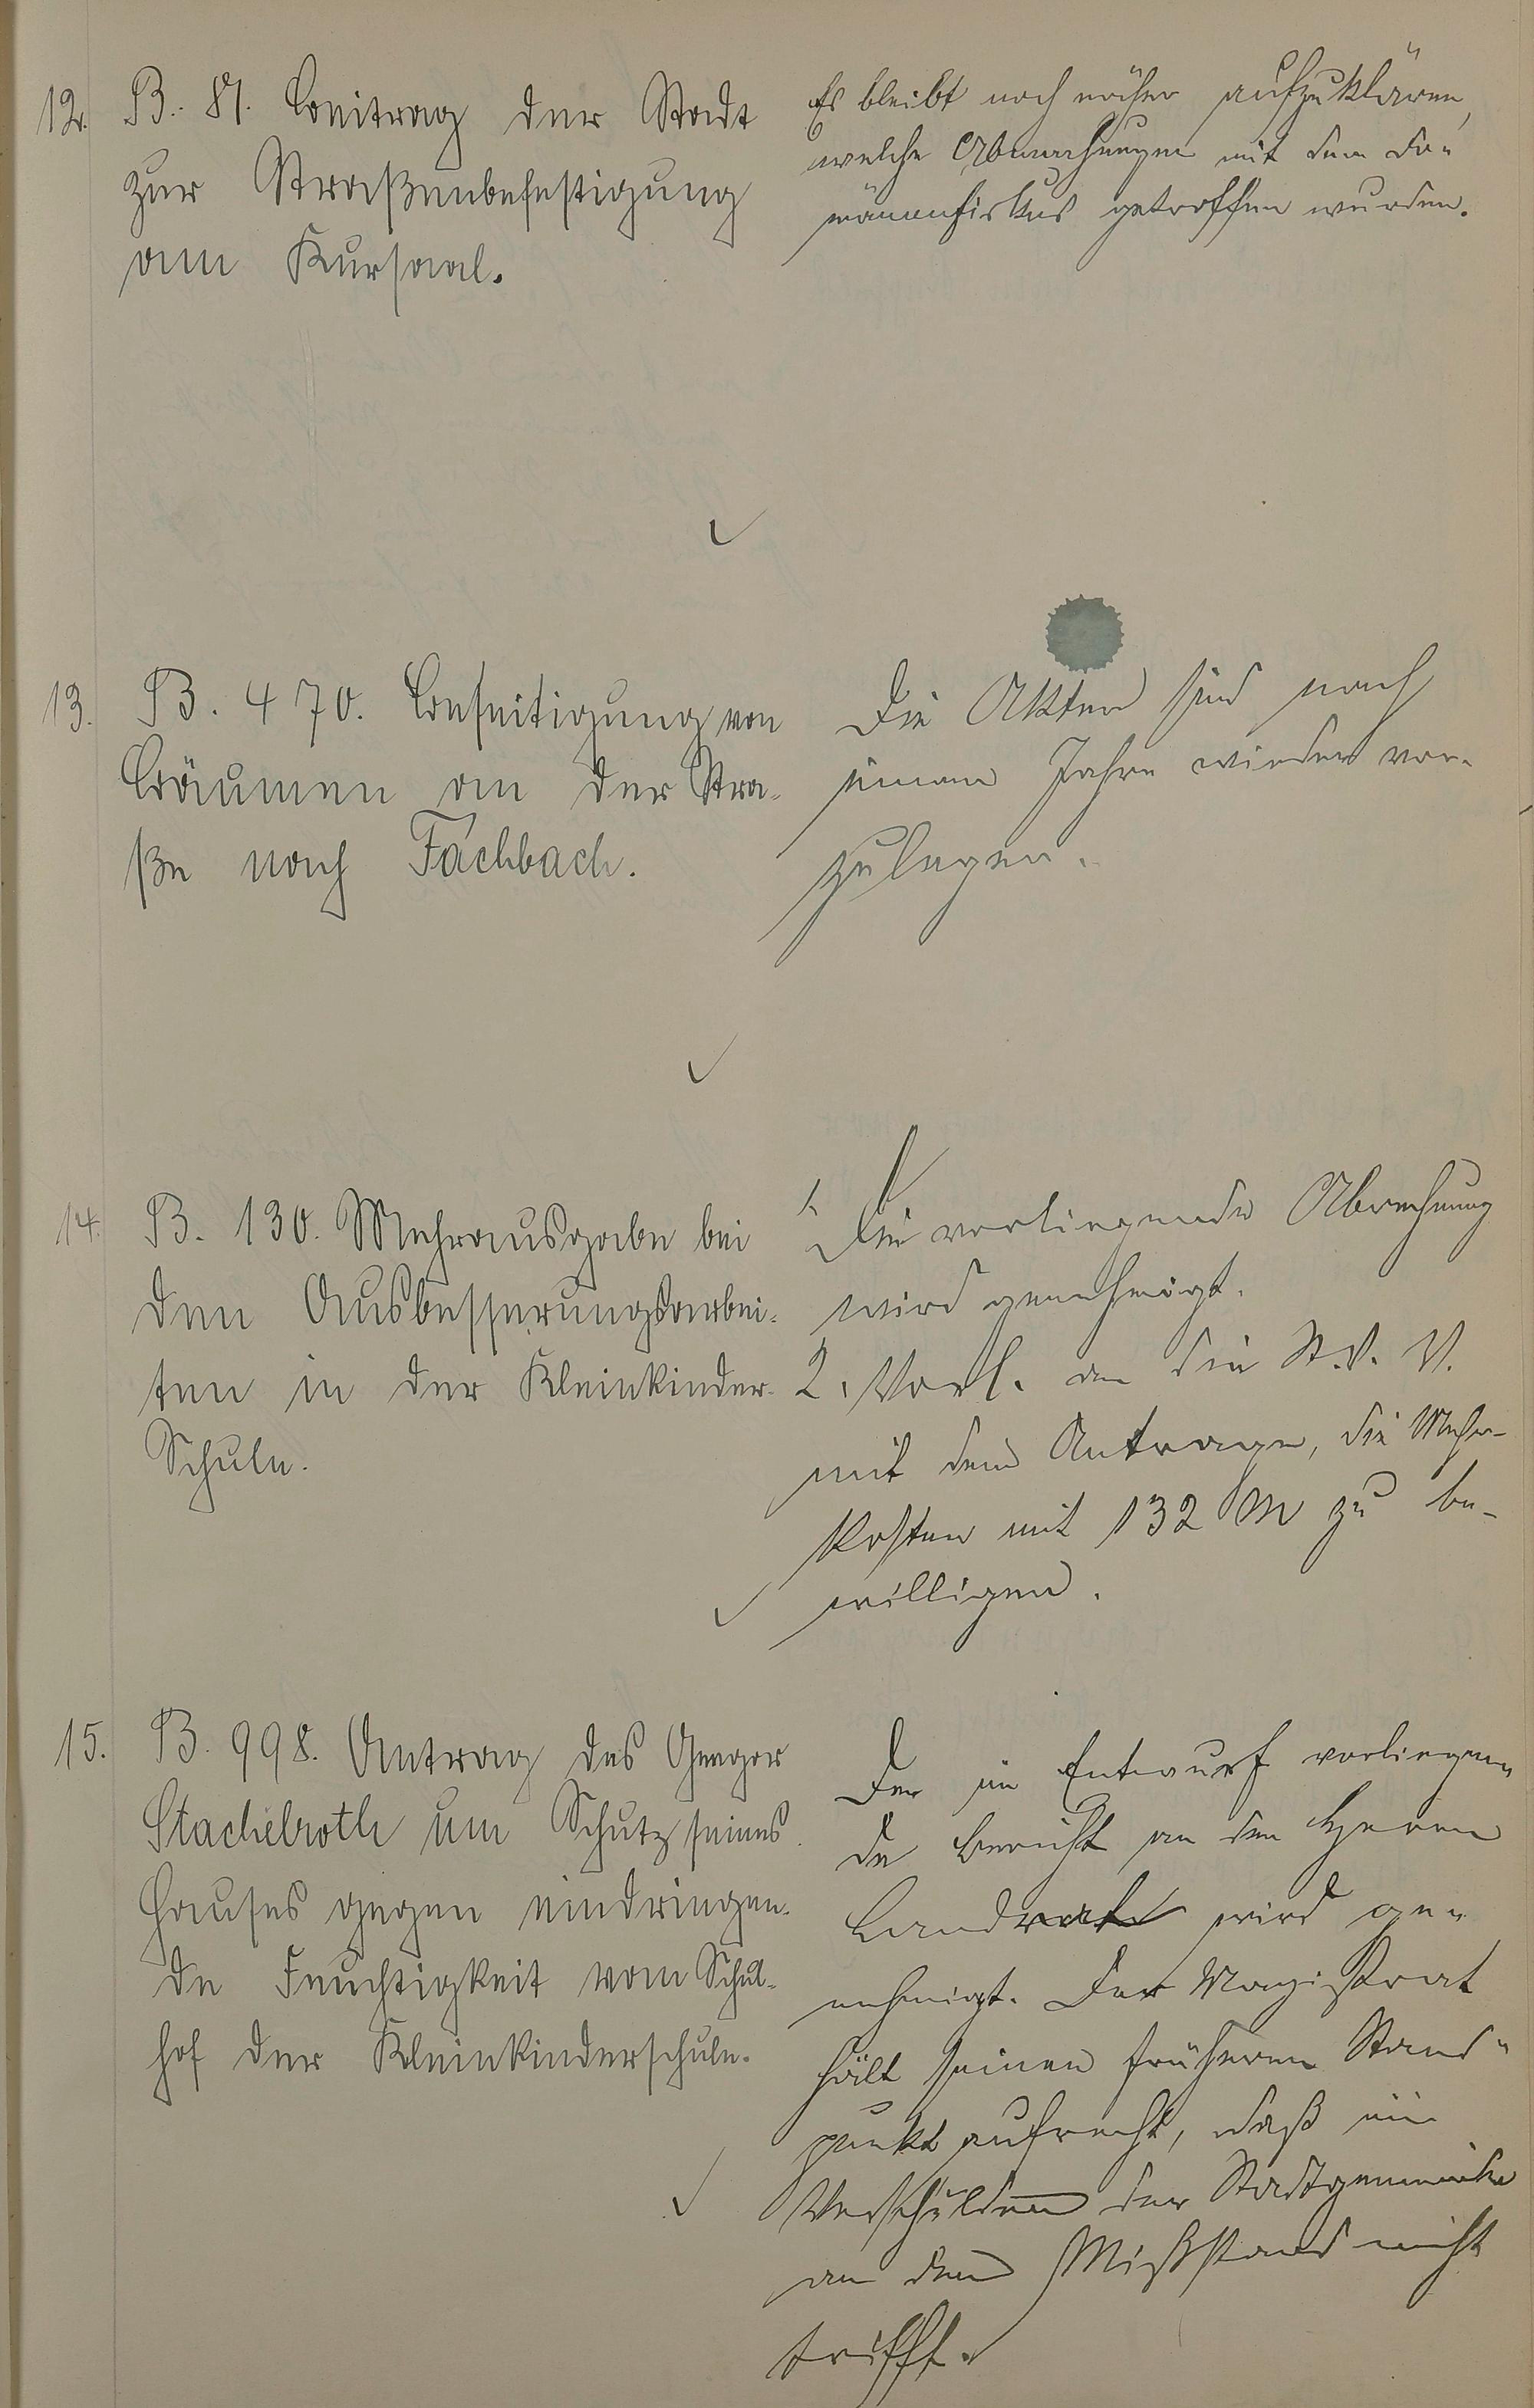 12. B. 81. Beitrag der Stadt
zur Straßenbefestigung
am Kursaal.
Es bleibt noch näher aufzuklären,
welche Abmachungen mit dem Do-
mänenfiskus getroffen wurden.
13. B. 470. Beseitigung von
Bäumen an der Stra-
ße nach Fachbach.
Die Akten sind nach
einem Jahre wieder vor-
zulegen.
14. B. 130. Mehrausgabe bei
den Ausbesserungsarbei-
ten in der Kleinkinder-
Schule.
1. Die vorliegende Abrechnung
wird genehmigt.
2. Vorl. an die St. V. V.
mit dem Antrage, die Mehr-
kosten mit 132 M zu be-
willigen.
15. B. 998. Antrag des Gregor
Stachelroth um Schutz seines
Hauses gegen eindringen-
de Feuchtigkeit vom Schul-
hof der Kleinkinderschule.
Der im Entwurf vorliegen-
de Bericht an den Herrn
Landrat wird ge-
nehmigt. Der Magistrat
hält seinen früheren Stand-
punkt aufrecht, daß ein
Verschulden der Stadtgemeinde
an dem Mißstand nicht
trifft.